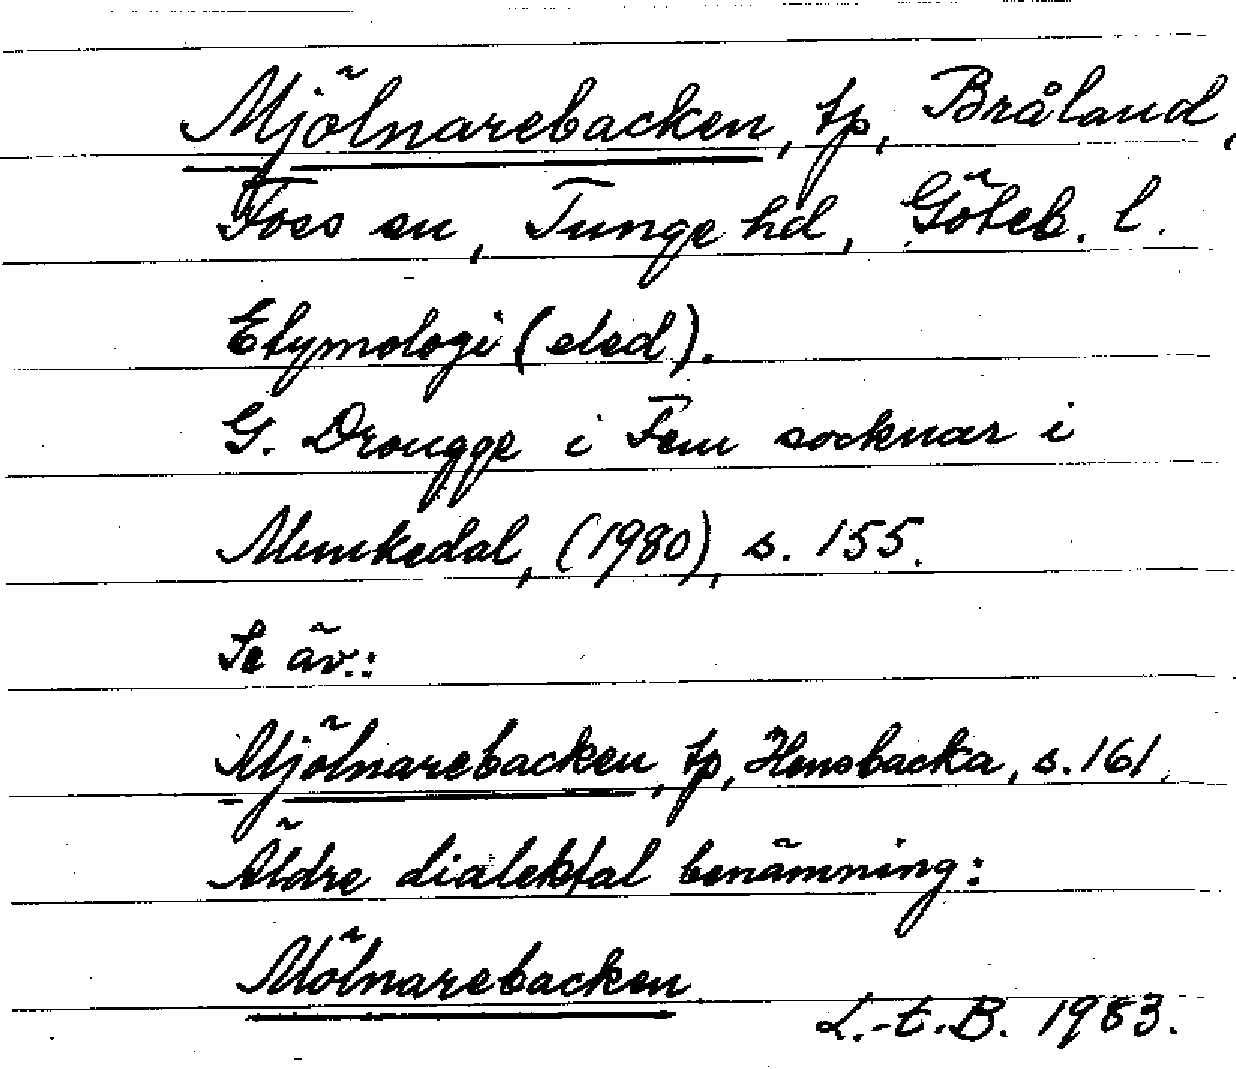 Mjölnarebacken, tp, Bråland,
Foss sn, Tunge hd, Göteb. l.
Etymologi (eled).
G. Drougge i Fem socknar i
Munkedal, (1980), s. 155.
Se äv.:
Mjölnarebacken, tp, Hensbacka, s. 161.
Äldre dialektal benämning:
Mölnarebacken
L.-t.B. 1983.